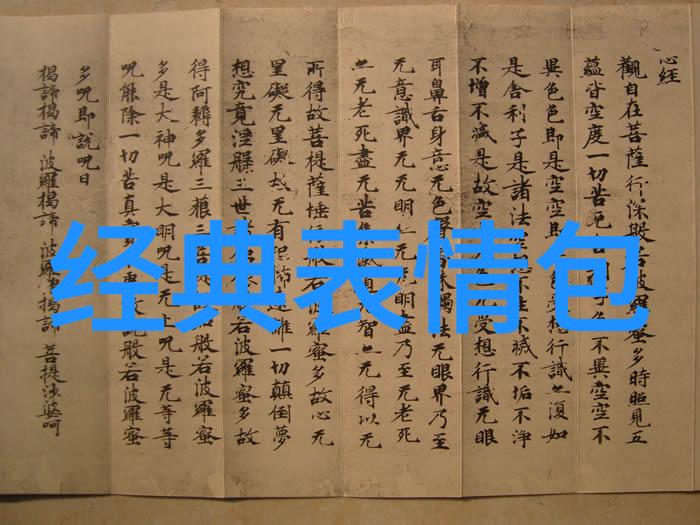 心经
觀自在菩薩行深般若波羅蜜多時照見五
蘊皆空度一切苦厄子色不異空空不
異色色即是空空即色受想行識亦復如
是舍利子是諸法不生不滅不垢不淨
不增不減是故空无受想行識无眼
耳鼻舌身意无色聲味觸法无眼界乃至
无意識界无无明亦无明盡乃至无老死
亦无老死盡无苦集滅道无智亦无得以无
所得故菩提薩埵依般若波羅蜜多故心无
罣礙无罣礙故无有恐怖遠離一切顛倒夢
想究竟涅槃三世般若波羅蜜多故
得阿耨多羅三藐三菩提故知般若波羅蜜
多是大神咒是大明咒是无上咒是无等等
咒能除一切苦真說般若波羅蜜
多咒即說咒曰
揭諦揭諦 波羅揭諦 波羅僧揭諦 菩提薩婆呵
经典表情包